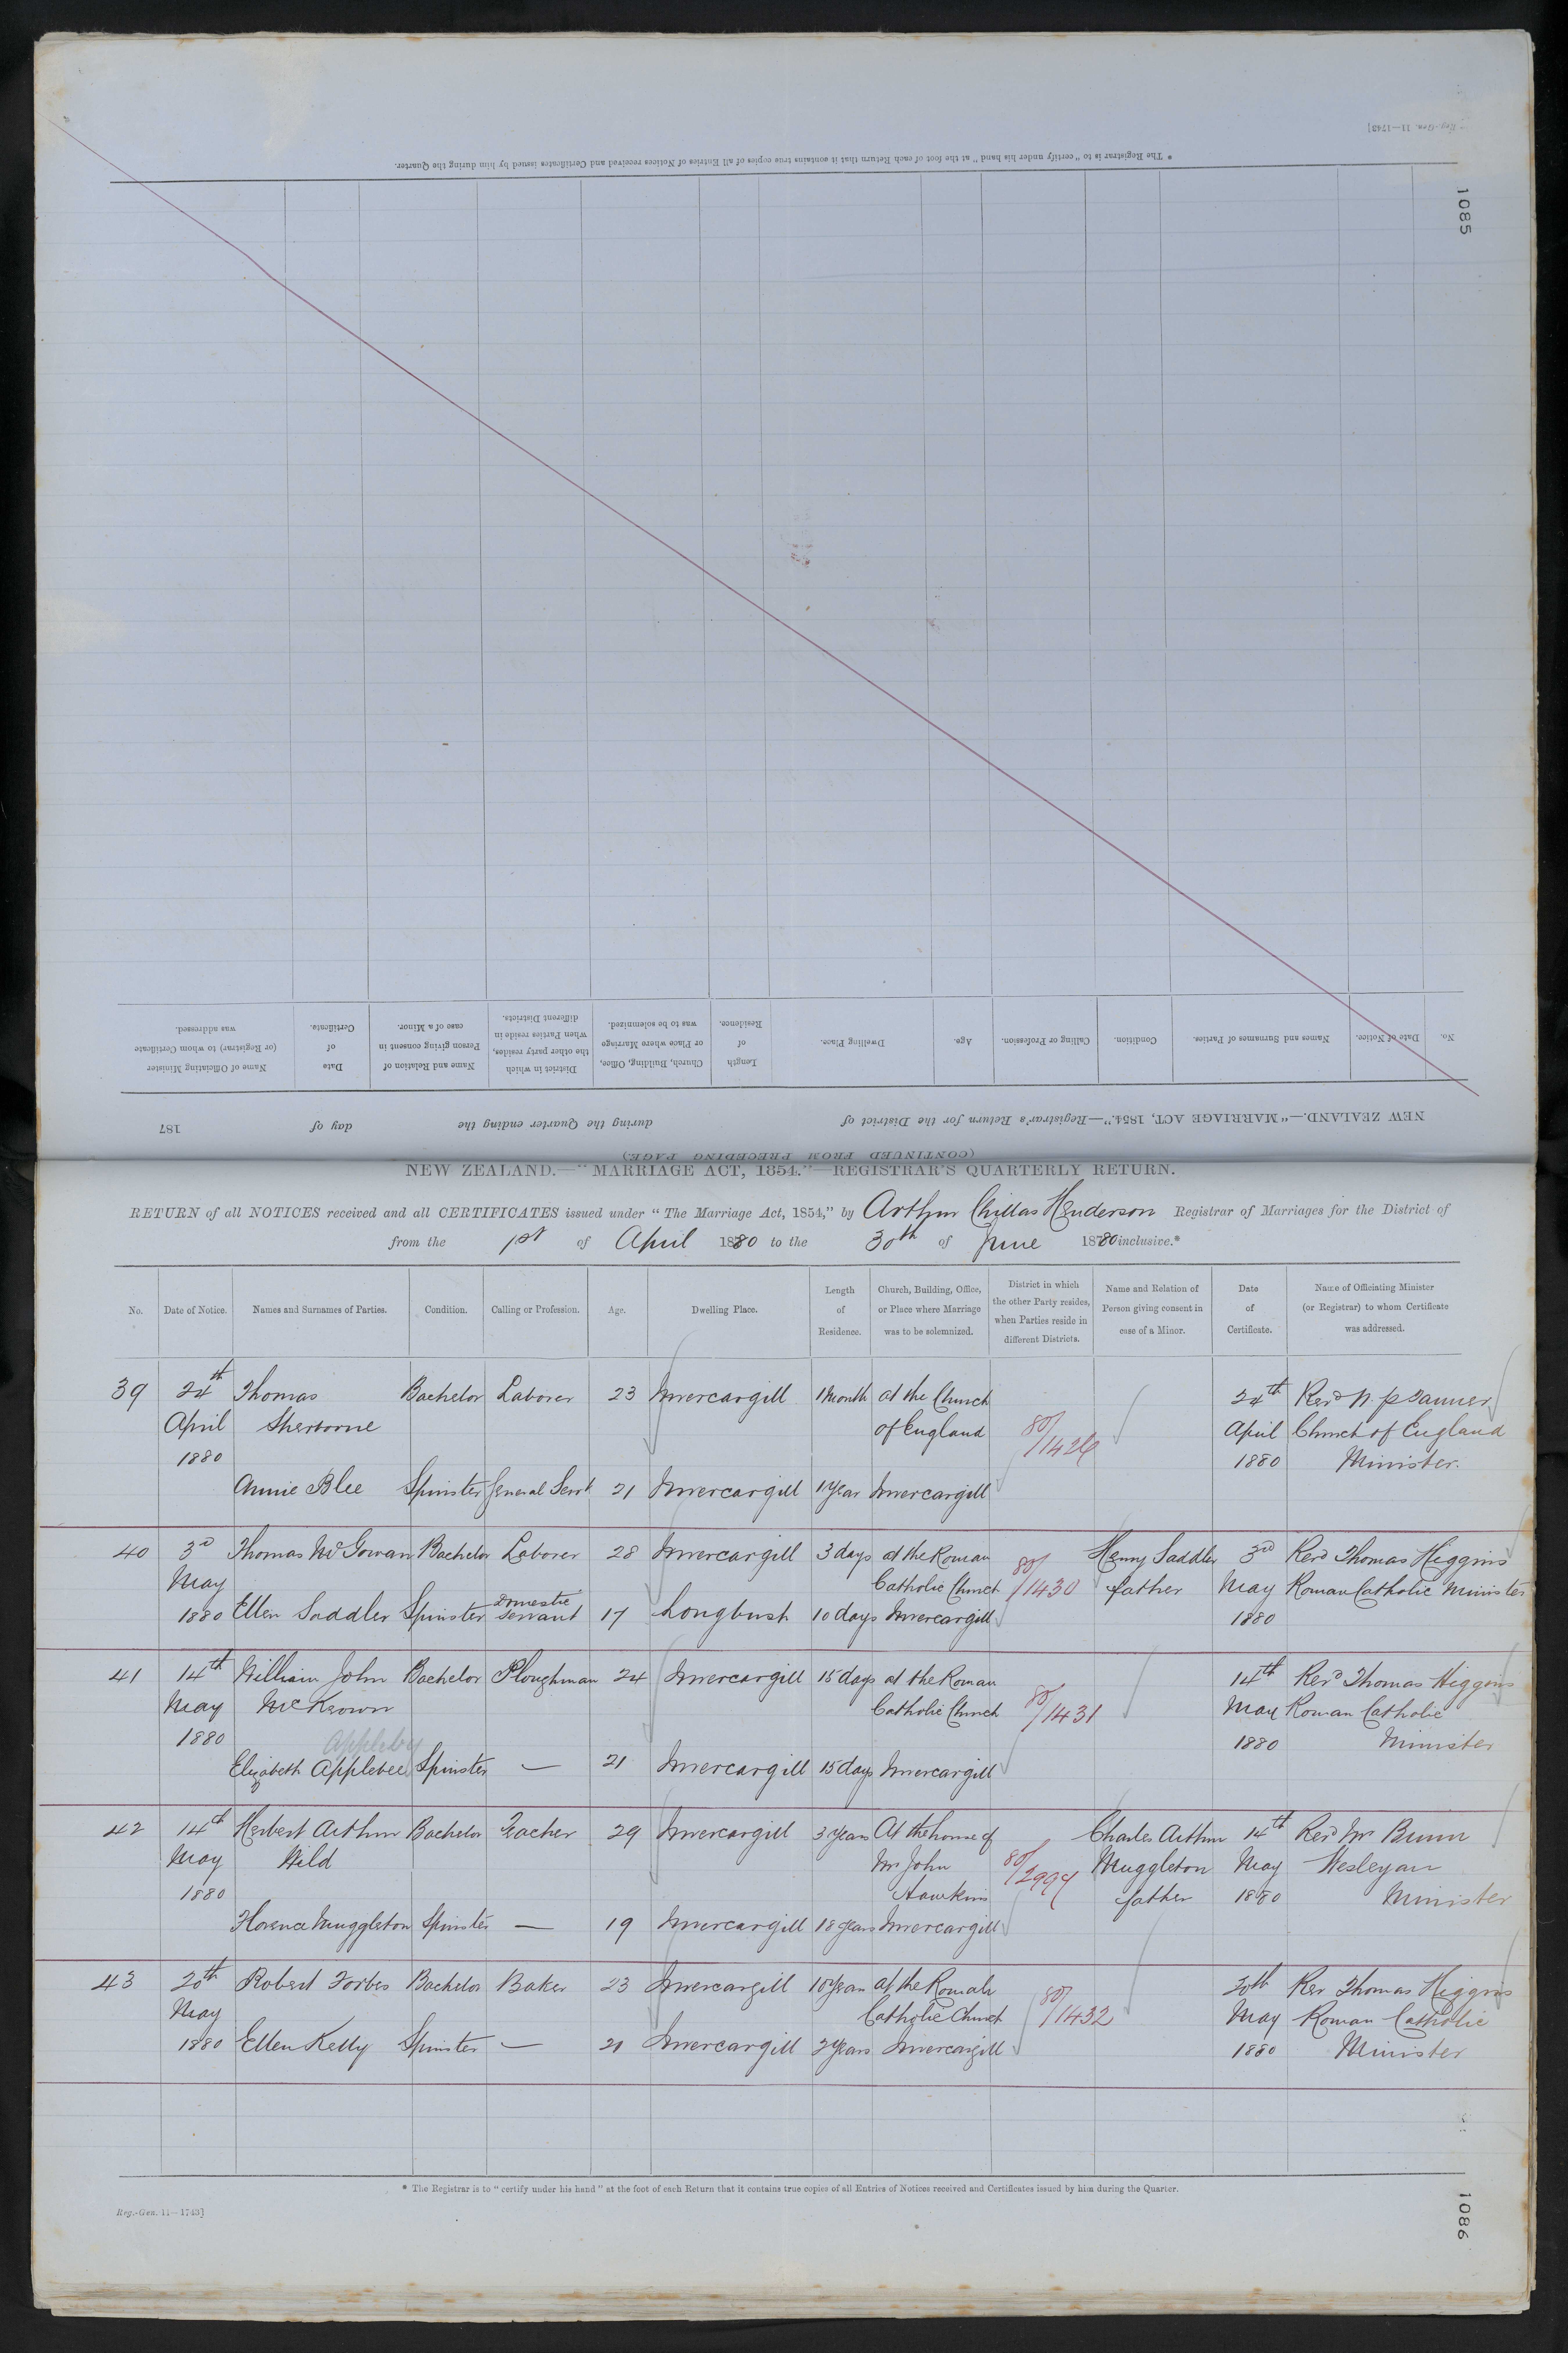 Reg.-Gen. 11—1743]
1085
* The Registrar is to "certify under his hand" at the foot of each Return that it contains true copies of all Entries of Notices received and Certificates issued by him during the Quarter.
No.
Date of Notice.
Names and Surnames of Parties.
Condition.
Calling or Profession.
Age.
Dwelling Place.
Length
of
Residence.
Church, Building, Office,
or Place where Marriage
was to be solemnized.
District in which
the other party resides,
when Parties reside in
different Districts.
Name and Relation of
Person giving consent in
case of a Minor.
Date
of
Certificate.
Name of Officiating Minister
(or Registrar) to whom Certificate
was addressed.
NEW ZEALAND.—"MARRIAGE ACT, 1854."—Registrar's Return for the District of during the Quarter ending the day of 187
(CONTINUED FROM PRECEDING PAGE)
NEW ZEALAND.—"MARRIAGE ACT, 1854."—REGISTRAR'S QUARTERLY RETURN.
RETURN of all NOTICES received and all CERTIFICATES issued under "The Marriage Act, 1854," by Arthur Chillas Henderson Registrar of Marriages for the District of
from the 1st of April 1880 to the 30th of June 1880 inclusive.*
No.
Date of Notice.
Names and Surnames of Parties.
Condition.
Calling or Profession.
Age.
Dwelling Place.
Length
of
Residence.
Church, Building, Office,
or Place where Marriage
was to be solemnized.
District in which
the other Party resides,
when Parties reside in
different Districts.
Name and Relation of
Person giving consent in
case of a Minor.
Date
of
Certificate.
Name of Officiating Minister
(or Registrar) to whom Certificate
was addressed.
39 24th Thomas Bachelor Laborer 23 Invercargill 1 Month at the Church 24th Revd
April Sherborne of England 80/ April Church of England
1880 1880 Minister.
Annie Blee Spinster General Servt 21 Invercargill 1 Year Invercargill
40 3rd Thomas McGowan Bachelor Laborer 28 Invercargill 3 days at the Roman 80/1430 Henry Saddler 3rd Revd Thomas Higgins
May Catholic Church father May Roman Catholic Minister
1880 Ellen Saddler Spinster Domestic servant 17 Longbush 10 days Invercargill 1880
41 14th William John Bachelor Ploughman 24 Invercargill 15 days at the Roman 14th Revd Thomas Higgins
May McKeown Catholic Church 80/1431 May Roman Catholic
1880 Appleby 1880 Minister
Elizabeth Applebee Spinster — 21 Invercargill 15 days Invercargill
42 14th Herbert Arthur Bachelor Teacher 29 Invercargill 3 Years At the home of Charles Arthur 14th Revd Mr
May Wild Mr John 80/ Muggleton May Wesleyan
1880 Hawkins father 1880 Minister
Florence Muggleton Spinster — 19 Invercargill 18 years Invercargill
43 20th Robert Forbes Bachelor Baker 23 Invercargill at the Roman 20th Rev Thomas Higgins
May Catholic Church 80/1432 May Roman Catholic
1880 Ellen Kelly Spinster — 21 Invercargill 2 Years Invercargill 1880 Minister
* The Registrar is to "certify under his hand" at the foot of each Return that it contains true copies of all Entries of Notices received and Certificates issued by him during the Quarter.
Reg.-Gen. 11—1743]
1086